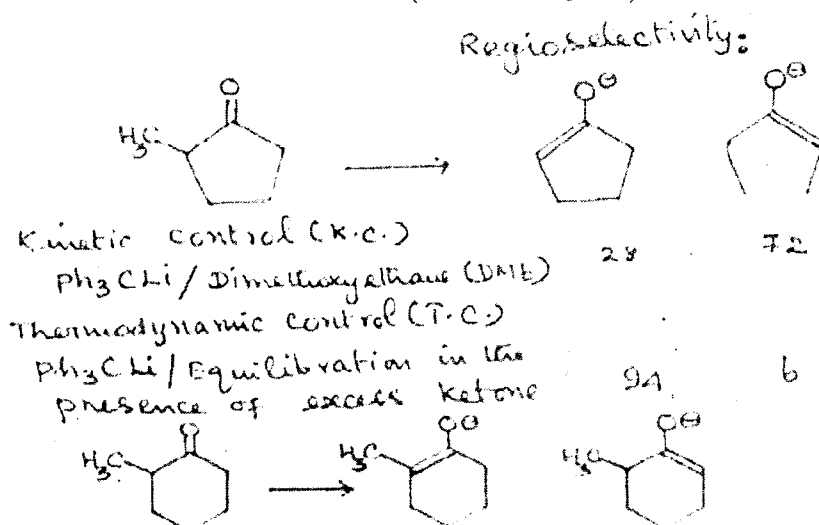 Regioselectivity:
O O⊖ O⊖
H₃C
Kinetic control (K.C.)
28 72
Ph₃CLi / Dimethoxyethane (DME)
Thermodynamic control (T.C.)
Ph₃CLi / Equilibration in the
94 6
presence of excess ketone
O O⊖ O⊖
H₃C H₃C H₃C